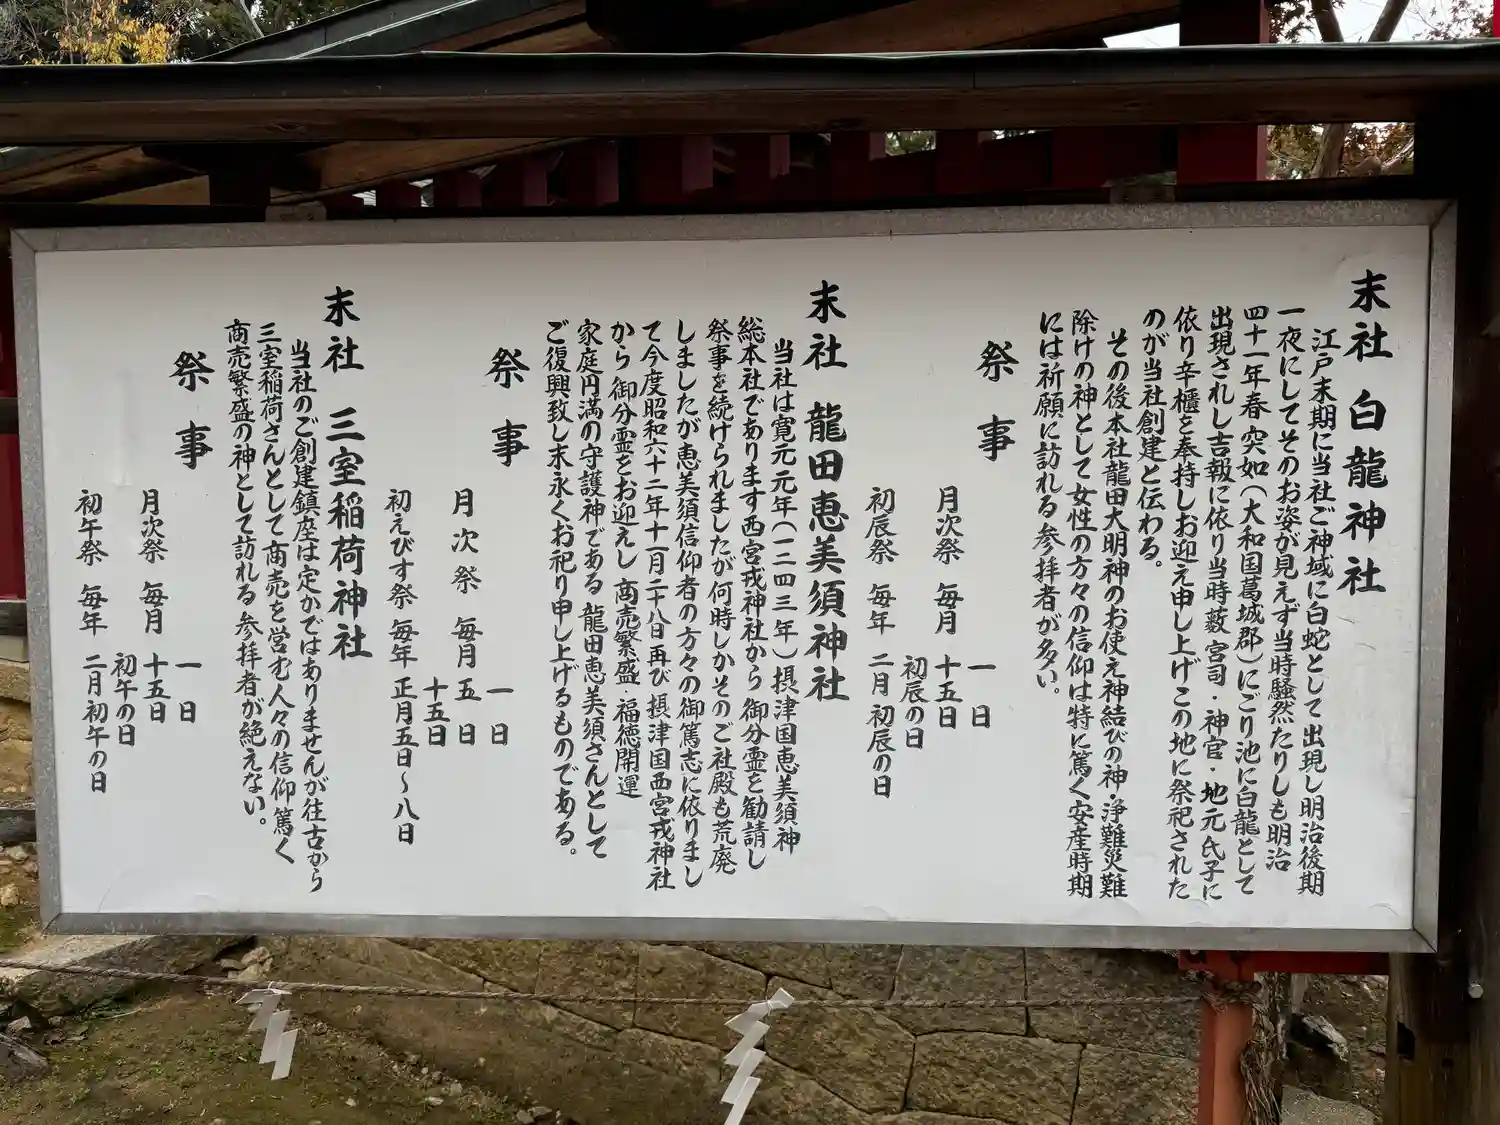 末社 白龍神社
江戸末期に当社ご神域に白蛇として出現し明治後期
一夜にしてそのお姿が見えず当時騒然たりしも明治
四十一年春 突如(大和国葛城郡)にごり池に白龍として
出現されし吉報に依り当時藪宮司・神官・地元氏子に
依り辛櫃を奉持しお迎え申し上げこの地に祭祀された
のが当社創建と伝わる。
その後本社龍田大明神のお使え神結びの神・浄難災難
除けの神として女性の方々の信仰は特に篤く安産時期
には祈願に訪れる参拝者が多い。
祭事
月次祭 毎月 一日
十五日
初辰の日
初辰祭 毎年 二月 初辰の日
末社 龍田恵美須神社
当社は寛元元年(一二四三年)摂津国恵美須神
総本社であります西宮戎神社から御分霊を勧請し
祭事を続けられましたが何時しかそのご社殿も荒廃
しましたが恵美須信仰者の方々の御篤志に依りまし
て今度昭和六十二年十一月二十八日再び摂津国西宮戎神社
から御分霊をお迎えし 商売繁盛・福徳開運
家庭円満の守護神である 龍田恵美須さんとして
ご復興致し末永くお祀り申し上げるものである。
祭事
月次祭 毎月 一日
五日
十五日
初えびす祭 毎年 正月五日〜八日
末社 三室稲荷神社
当社のご創建鎮座は定かではありませんが往古から
三室稲荷さんとして商売を営む人々の信仰篤く
商売繁盛の神として訪れる参拝者が絶えない。
祭事
月次祭 毎月 一日
十五日
初午の日
初午祭 毎年 二月初午の日